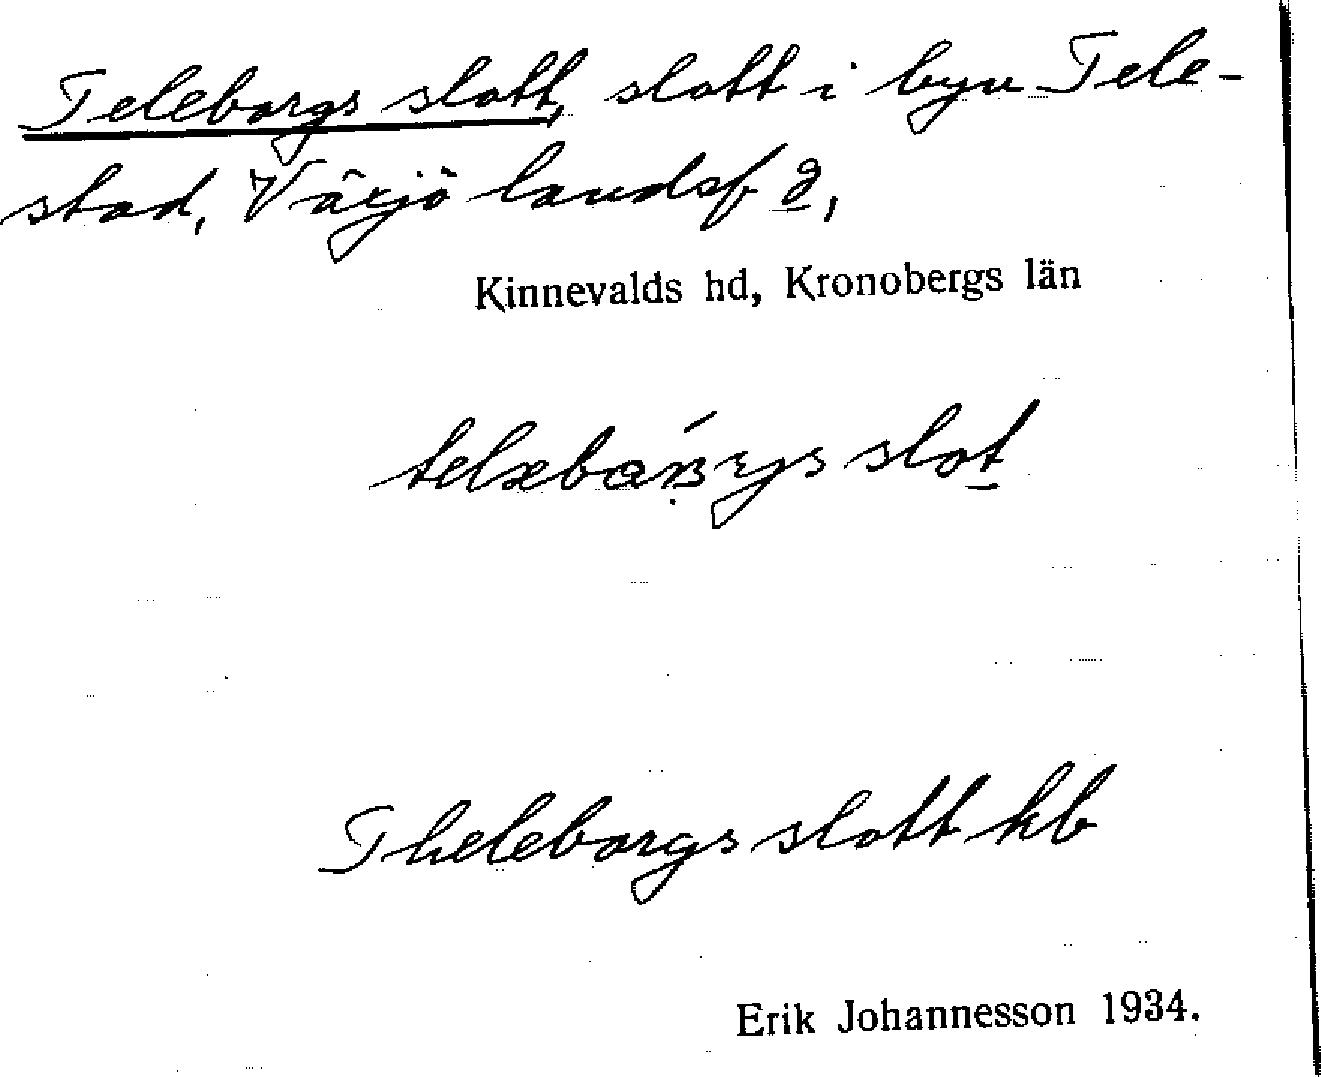 Teleborgs slott, slott i byn Tele-
stad, Växjö landsf g,
Kinnevalds hd, Kronobergs län
slot
Theleborgs slott hb
Erik Johannesson 1934.